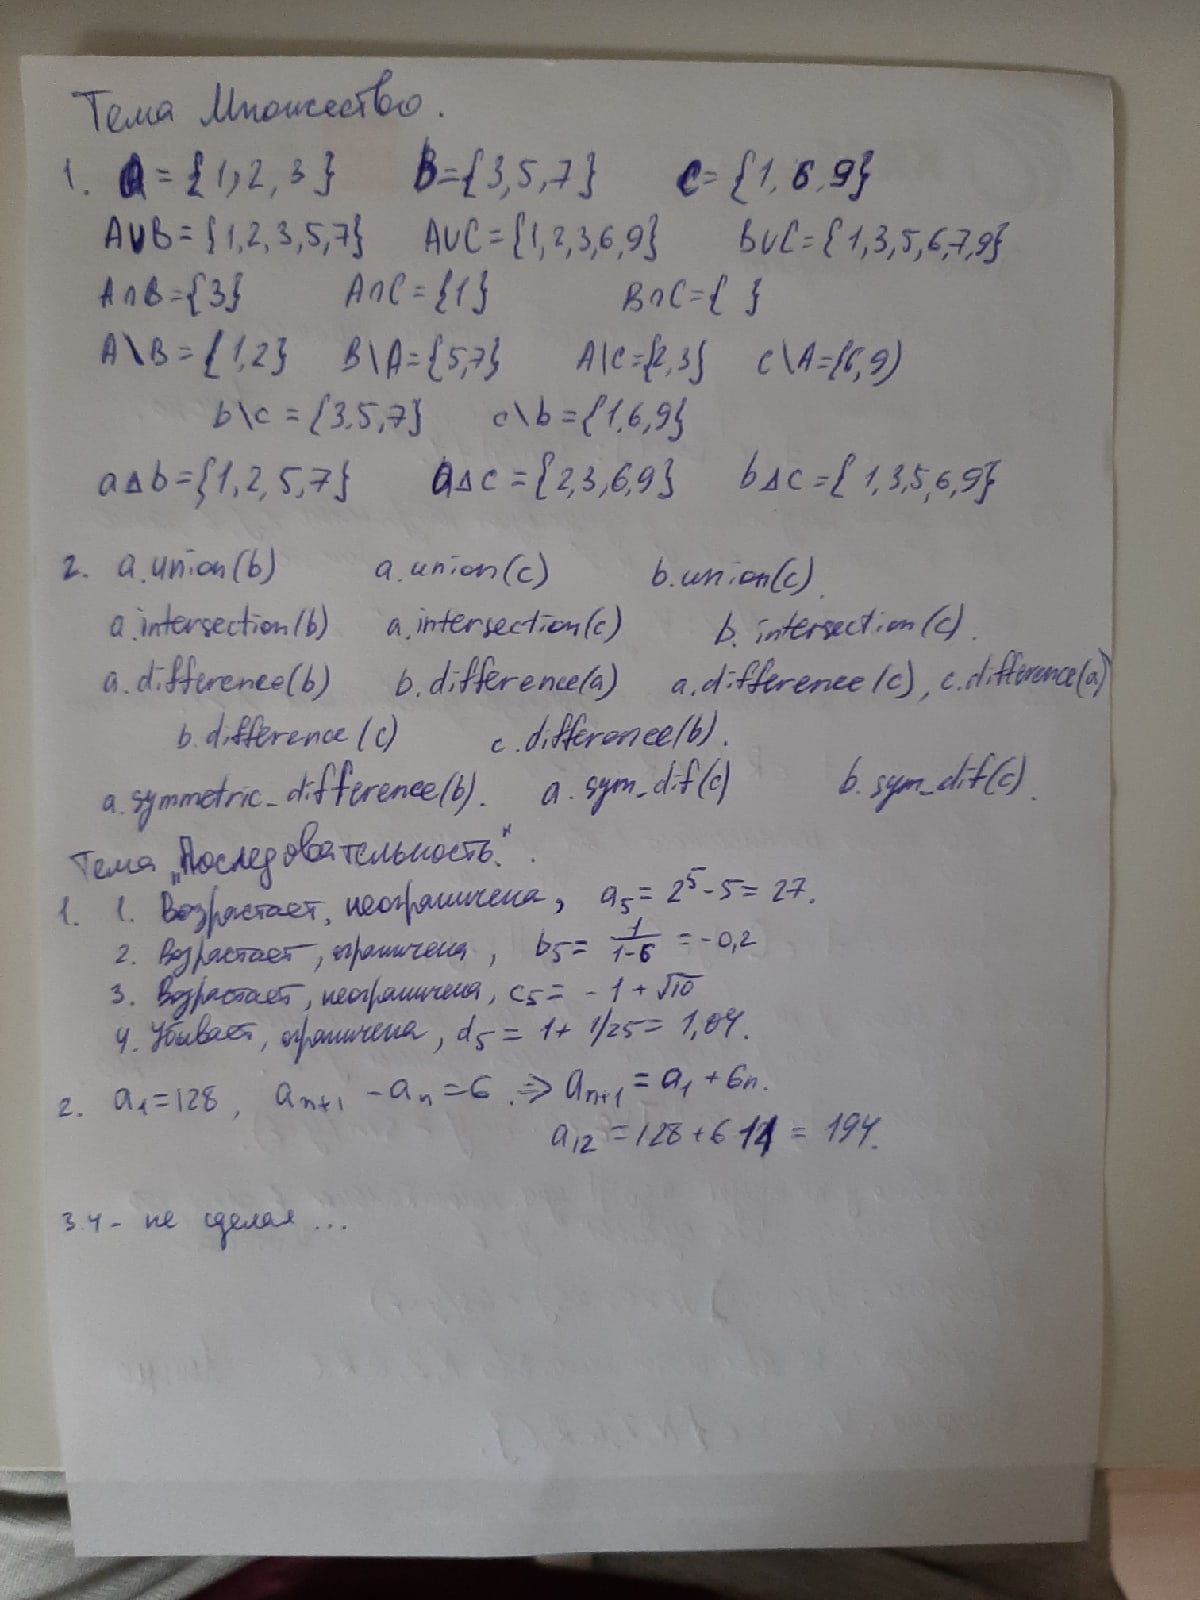 Тема Множество.
1. A = {1, 2, 3} B = {3, 5, 7} C = {1, 6, 9}
A∪B = {1,2,3,5,7} A∪C = {1,2,3,6,9} B∪C = {1,3,5,6,7,9}
A∩B = {3} A∩C = {1} B∩C = { }
A\B = {1,2} B\A = {5,7} A\C = {2,3} C\A = {6,9}
b\c = {3,5,7} c\b = {1,6,9}
a△b = {1,2,5,7} a△c = {2,3,6,9} b△c = {1,3,5,6,9}
2. a.union(b) a.union(c) b.union(c).
a.intersection(b) a.intersection(c) b.intersection(c).
a.difference(b) b.difference(a) a.difference(c), c.difference(a)
b.difference(c) c.difference(b).
a.symmetric_difference(b). a.sym_dif(c) b.sym_dif(c).
Тема „Последовательность".
1. 1. Возрастает, неограничена, a₅ = 2⁵ - 5 = 27.
2. Возрастает, ограничена, b₅ = 1/(1-6) = -0,2
3. Возрастает, неограничена, c₅ = -1 + √10
4. Убывает, ограничена, d₅ = 1 + 1/25 = 1,04.
2. a₁ = 128, aₙ₊₁ - aₙ = 6. ⇒ aₙ₊₁ = a₁ + 6n.
a₁₂ = 128 + 6 11 = 194.
3.4 - не сделал ...